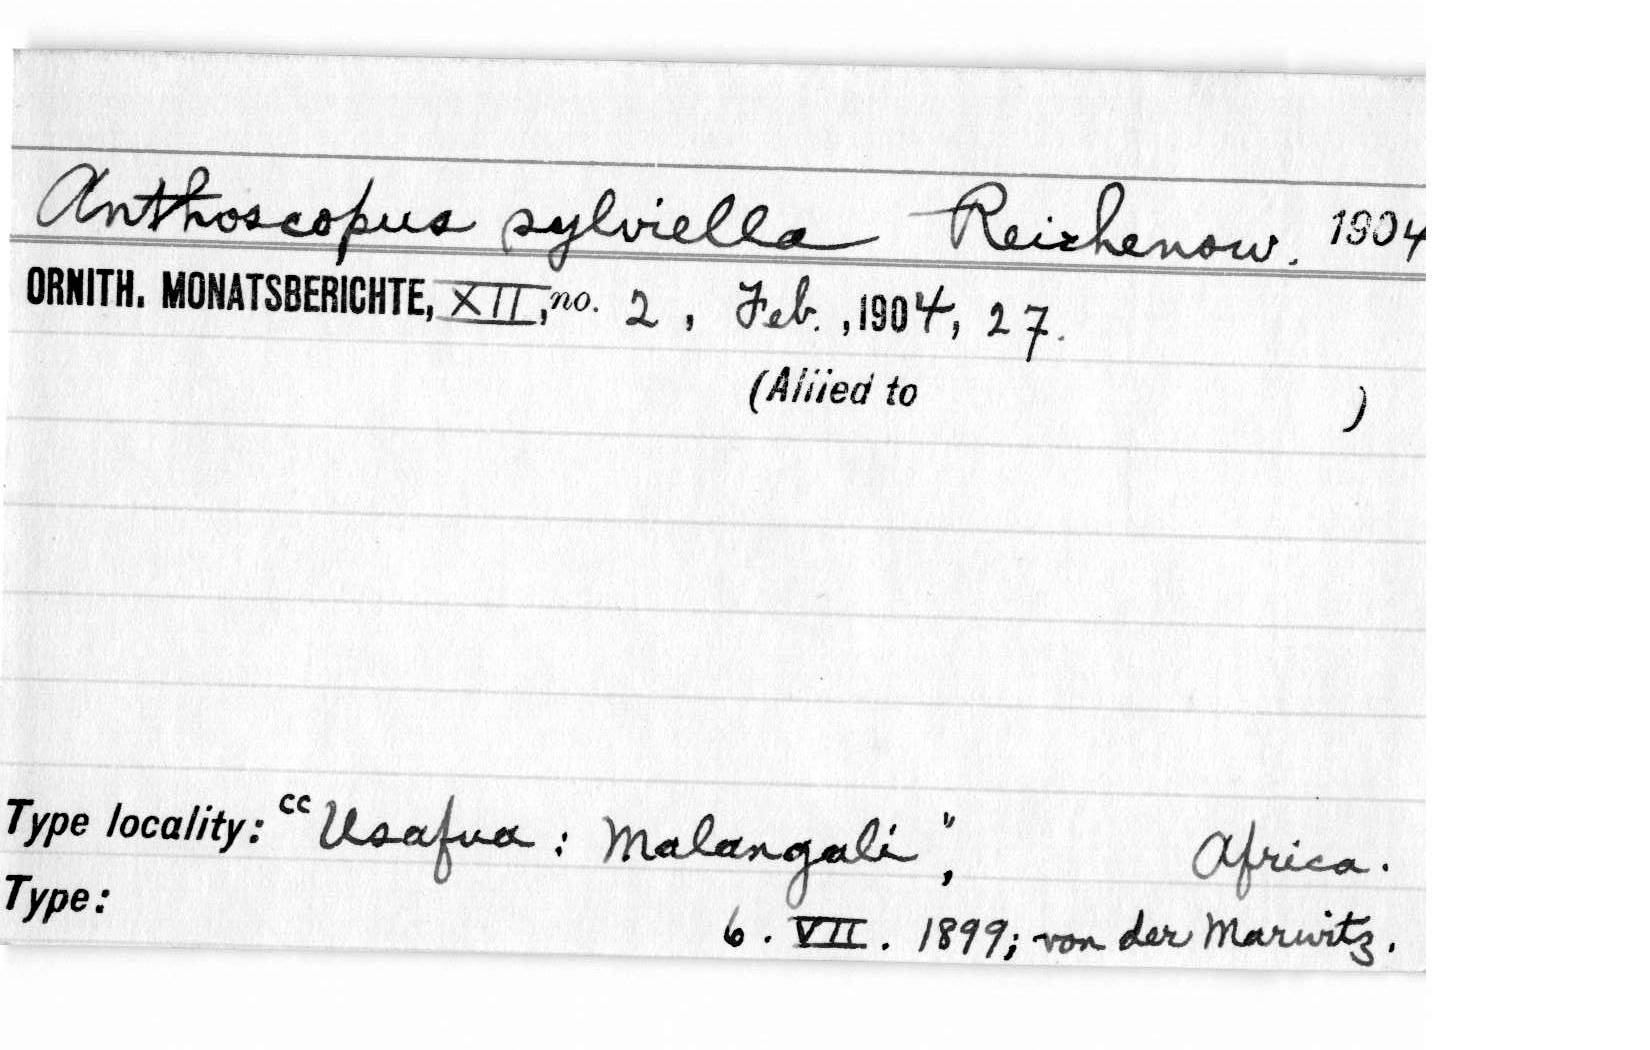 Anthoscopus sylviella Reichenow. 1904
ORNITH. MONATSBERICHTE, XII, no. 2, Feb., 1904, 27.
(Allied to )
Type locality: "Usafua: Malangali", Africa.
Type: 6. VII. 1899; von der Marwitz.